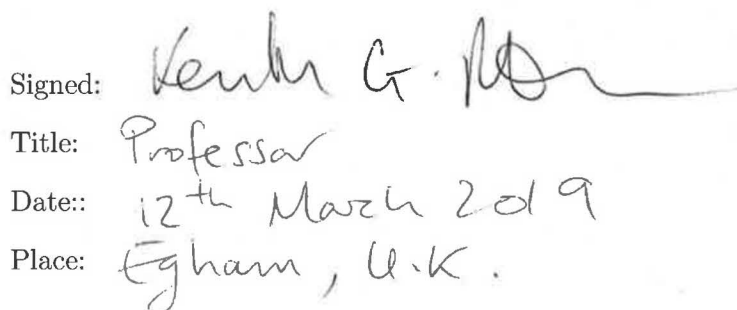 Signed: G.
Title: Professor
Date:: 12th March 2019
Place: Egham, U.K.